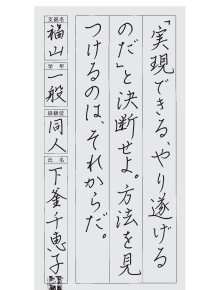 「実現できる、やり遂げる
のだ」と決断せよ。方法を見
つけるのは、それからだ。
支部名
福山
学年
一般
段級位
同人
氏名
下釜千恵子